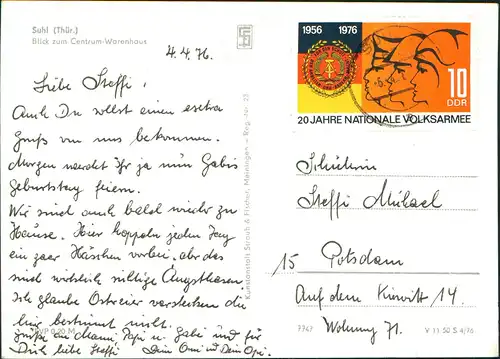 Suhl (Thür.)
Blick zum Centrum-Warenhaus
4.4.76.
Liebe Steffi!
Auch Du sollst einen extra
Gruß von uns bekommen.
Morgen werdet Ihr ja nun Gabis
Geburtstag feiern.
Wir sind auch bald wieder zu
Hause. Hier hoppeln jeden Tag
ein paar Häschen vorbei, aber das
sind wirklich richtige Angsthasen.
Ich glaube Ostereier verstecken die
hier bestimmt nicht.
Grüße an Mami Papi u. Gabi und für
Dich liebe Steffi Deine Omi u. Dein Opi.
EVP 0,20 M
Kunstanstalt Straub & Fischer, Meiningen – Reg.-Nr. 28
1956 1976
10
DDR
20 JAHRE NATIONALE VOLKSARMEE
Schülerin
Steffi Michael
15 Potsdam
Auf dem Kiewitt 14.
Wohnung 71.
V 11 50 S 4/76